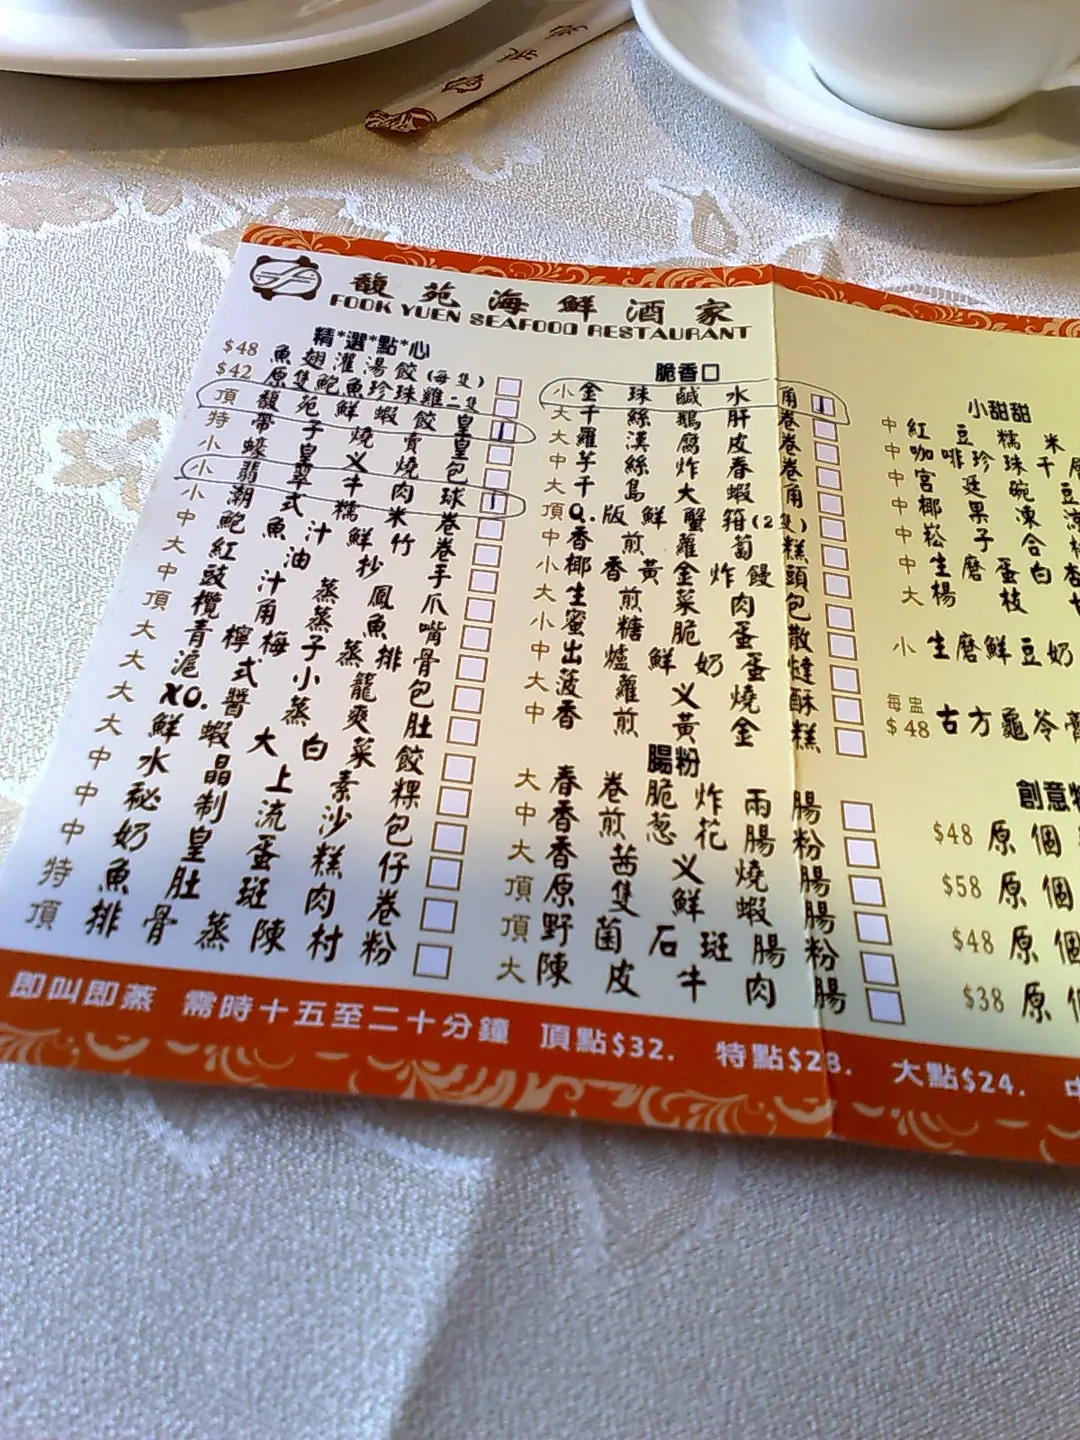 馥苑海鮮酒家
FOOK YUEN SEAFOOD RESTAURANT
精*選*點*心
$48 魚翅灌湯餃(每隻)
$42 原隻鮑魚珍珠雞二隻
頂 馥苑鮮蝦餃皇
特 帶子燒賣皇
小 蠔皇义燒包
小 翡翠牛肉球
小 潮式糯米卷
中 鮑魚汁鮮竹卷
大 紅油抄手
中 豉汁蒸鳳爪
頂 欖角蒸魚嘴
大 青檸梅子蒸排骨
大 滬式小籠包
大 XO.醬蒸爽肚
大 鮮蝦大白菜餃
中 水晶上素粿
中 秘制流沙包
中 奶皇蛋糕仔
特 魚肚斑肉卷
頂 排骨蒸陳村粉
脆香口
小 金珠鹹水角
大 千絲鵝肝卷
大 羅漢腐皮卷
中 芋絲炸春卷
大 千島大蝦角
頂 Q.版鮮蟹箱(2隻)
中 香煎蘿蔔糕
小 椰香黃金炸饅頭
大 生煎菜肉包
小 蜜糖脆蛋散
中 出爐鮮奶蛋撻
大 菠蘿义燒酥
中 香煎黃金糕
腸粉
大 春卷脆炸兩腸
中 香煎葱花腸粉
大 香茜义燒腸
頂 原隻鮮蝦腸
頂 野菌石斑腸粉
大 陳皮牛肉腸
小甜甜
中 紅豆糯米
中 咖啡珍珠千
中 宮廷豌豆
中 椰果凍
中 崧子合
中 生磨蛋白杏
大 楊枝
小 生磨鮮豆奶
每盅
$48 古方龜苓膏
創意
$48 原個
$58 原個
$48 原個
$38 原個
即叫即蒸 需時十五至二十分鐘 頂點$32. 特點$28. 大點$24.